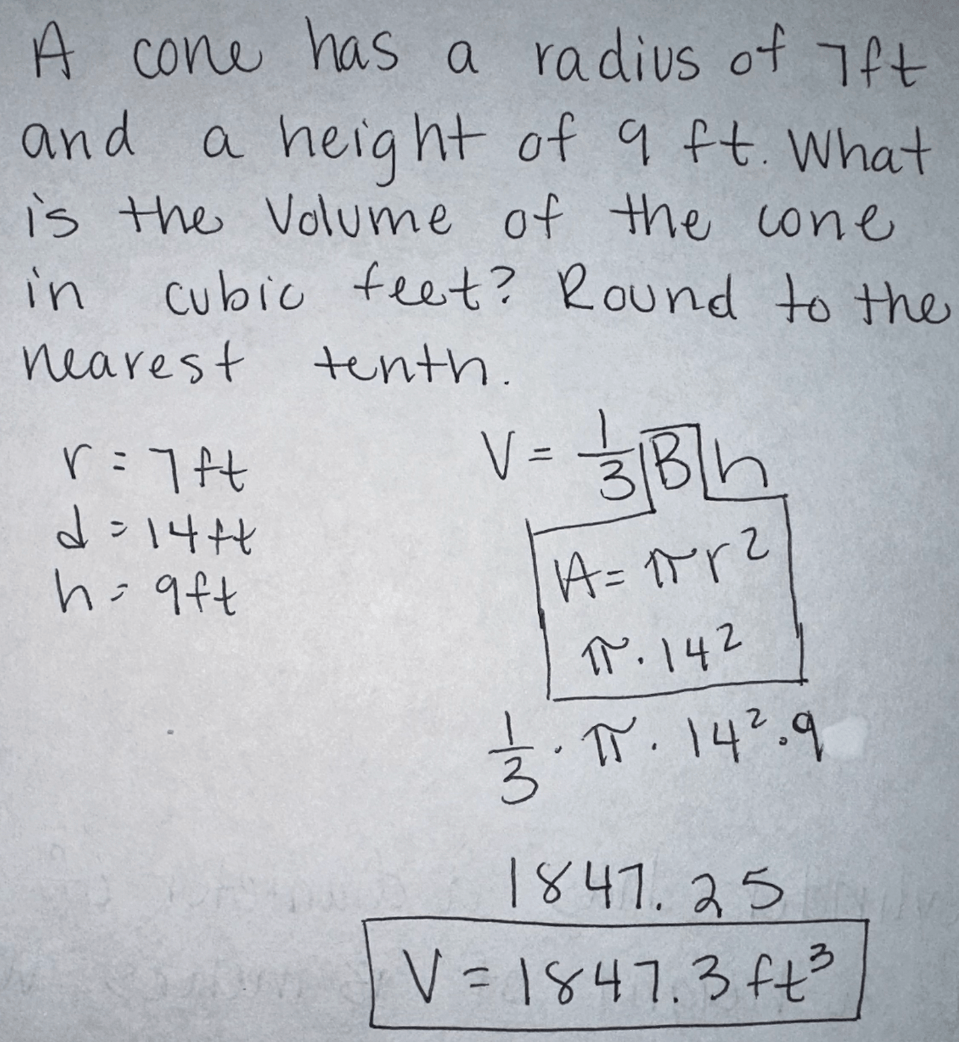 A cone has a radius of 7ft
and a height of 9 ft. What
is the Volume of the cone
in cubic feet? Round to the
nearest tenth.
r = 7ft
d = 14ft
h = 9ft
V = 1/3 B h
A = πr²
π · 14²
1/3 · π · 14² · 9
1847.25
V = 1847.3 ft³